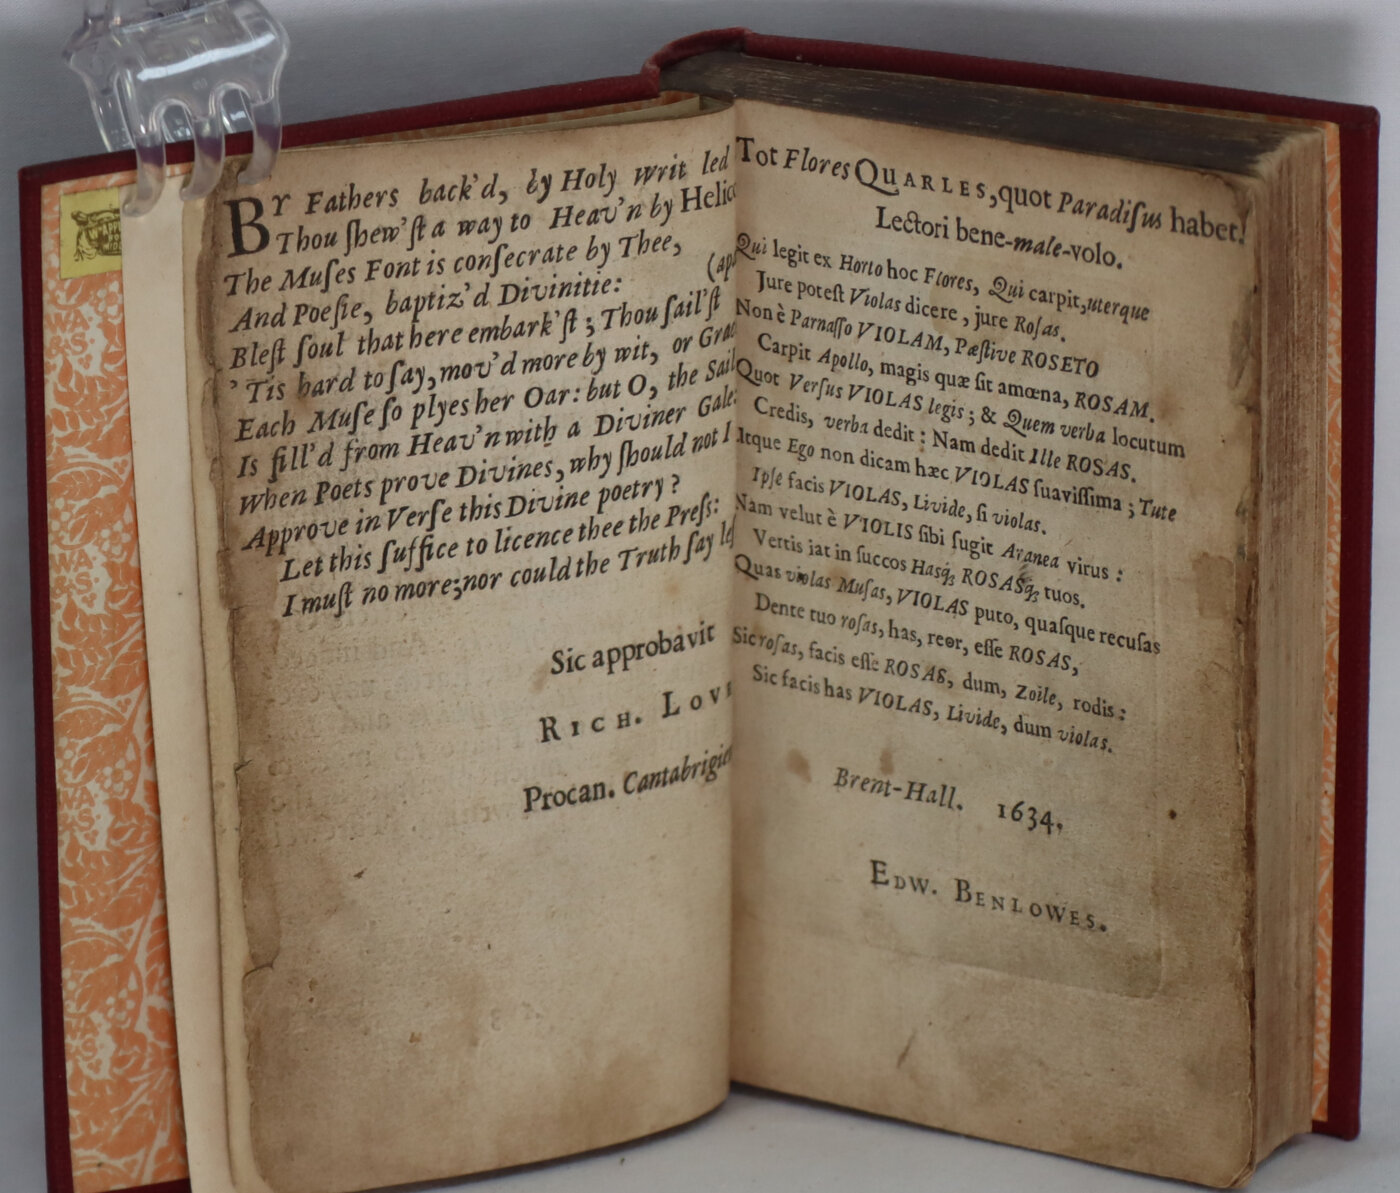 BY Fathers back'd, by Holy Writ led
Thou ſhew'ſt a way to Heav'n by Helic
The Muſes Font is conſecrate by Thee,
And Poeſie, baptiz'd Divinitie:
(apa
Bleſt ſoul that here embark'ſt; Thou ſail'ſt
'Tis hard to ſay, mov'd more by wit, or Grac
Each Muſe ſo plyes her Oar: but O, the Sail
Is fill'd from Heav'n with a Diviner Gale:
When Poets prove Divines, why ſhould not I
Approve in Verſe this Divine poetry?
Let this ſuffice to licence thee the Preſs:
I muſt no more; nor could the Truth ſay leſ
Sic approbavit
RICH. LOVE
Procan. Cantabrigien
Tot Flores QUARLES, quot Paradiſus habet!
Lectori bene-male-volo.
Qui legit ex Horto hoc Flores, Qui carpit, uterque
Jure poteſt Violas dicere, jure Roſas.
Non è Parnaſſo VIOLAM, Pæſtive ROSETO
Carpit Apollo, magis quæ ſit amœna, ROSAM.
Quot Verſus VIOLAS legis; & Quem verba locutum
Credis, verba dedit: Nam dedit Ille ROSAS.
Atque Ego non dicam hæc VIOLAS ſuaviſſima; Tute
Ipſe facis VIOLAS, Livide, ſi violas.
Nam velut è VIOLIS ſibi ſugit Aranea virus:
Vertis iat in ſuccos Haſq; ROSASq; tuos.
Quas violas Muſas, VIOLAS puto, quaſque recuſas
Dente tuo roſas, has, reor, eſſe ROSAS,
Sic roſas, facis eſſe ROSAS, dum, Zoile, rodis:
Sic facis has VIOLAS, Livide, dum violas.
Brent-Hall. 1634.
EDW. BENLOWES.